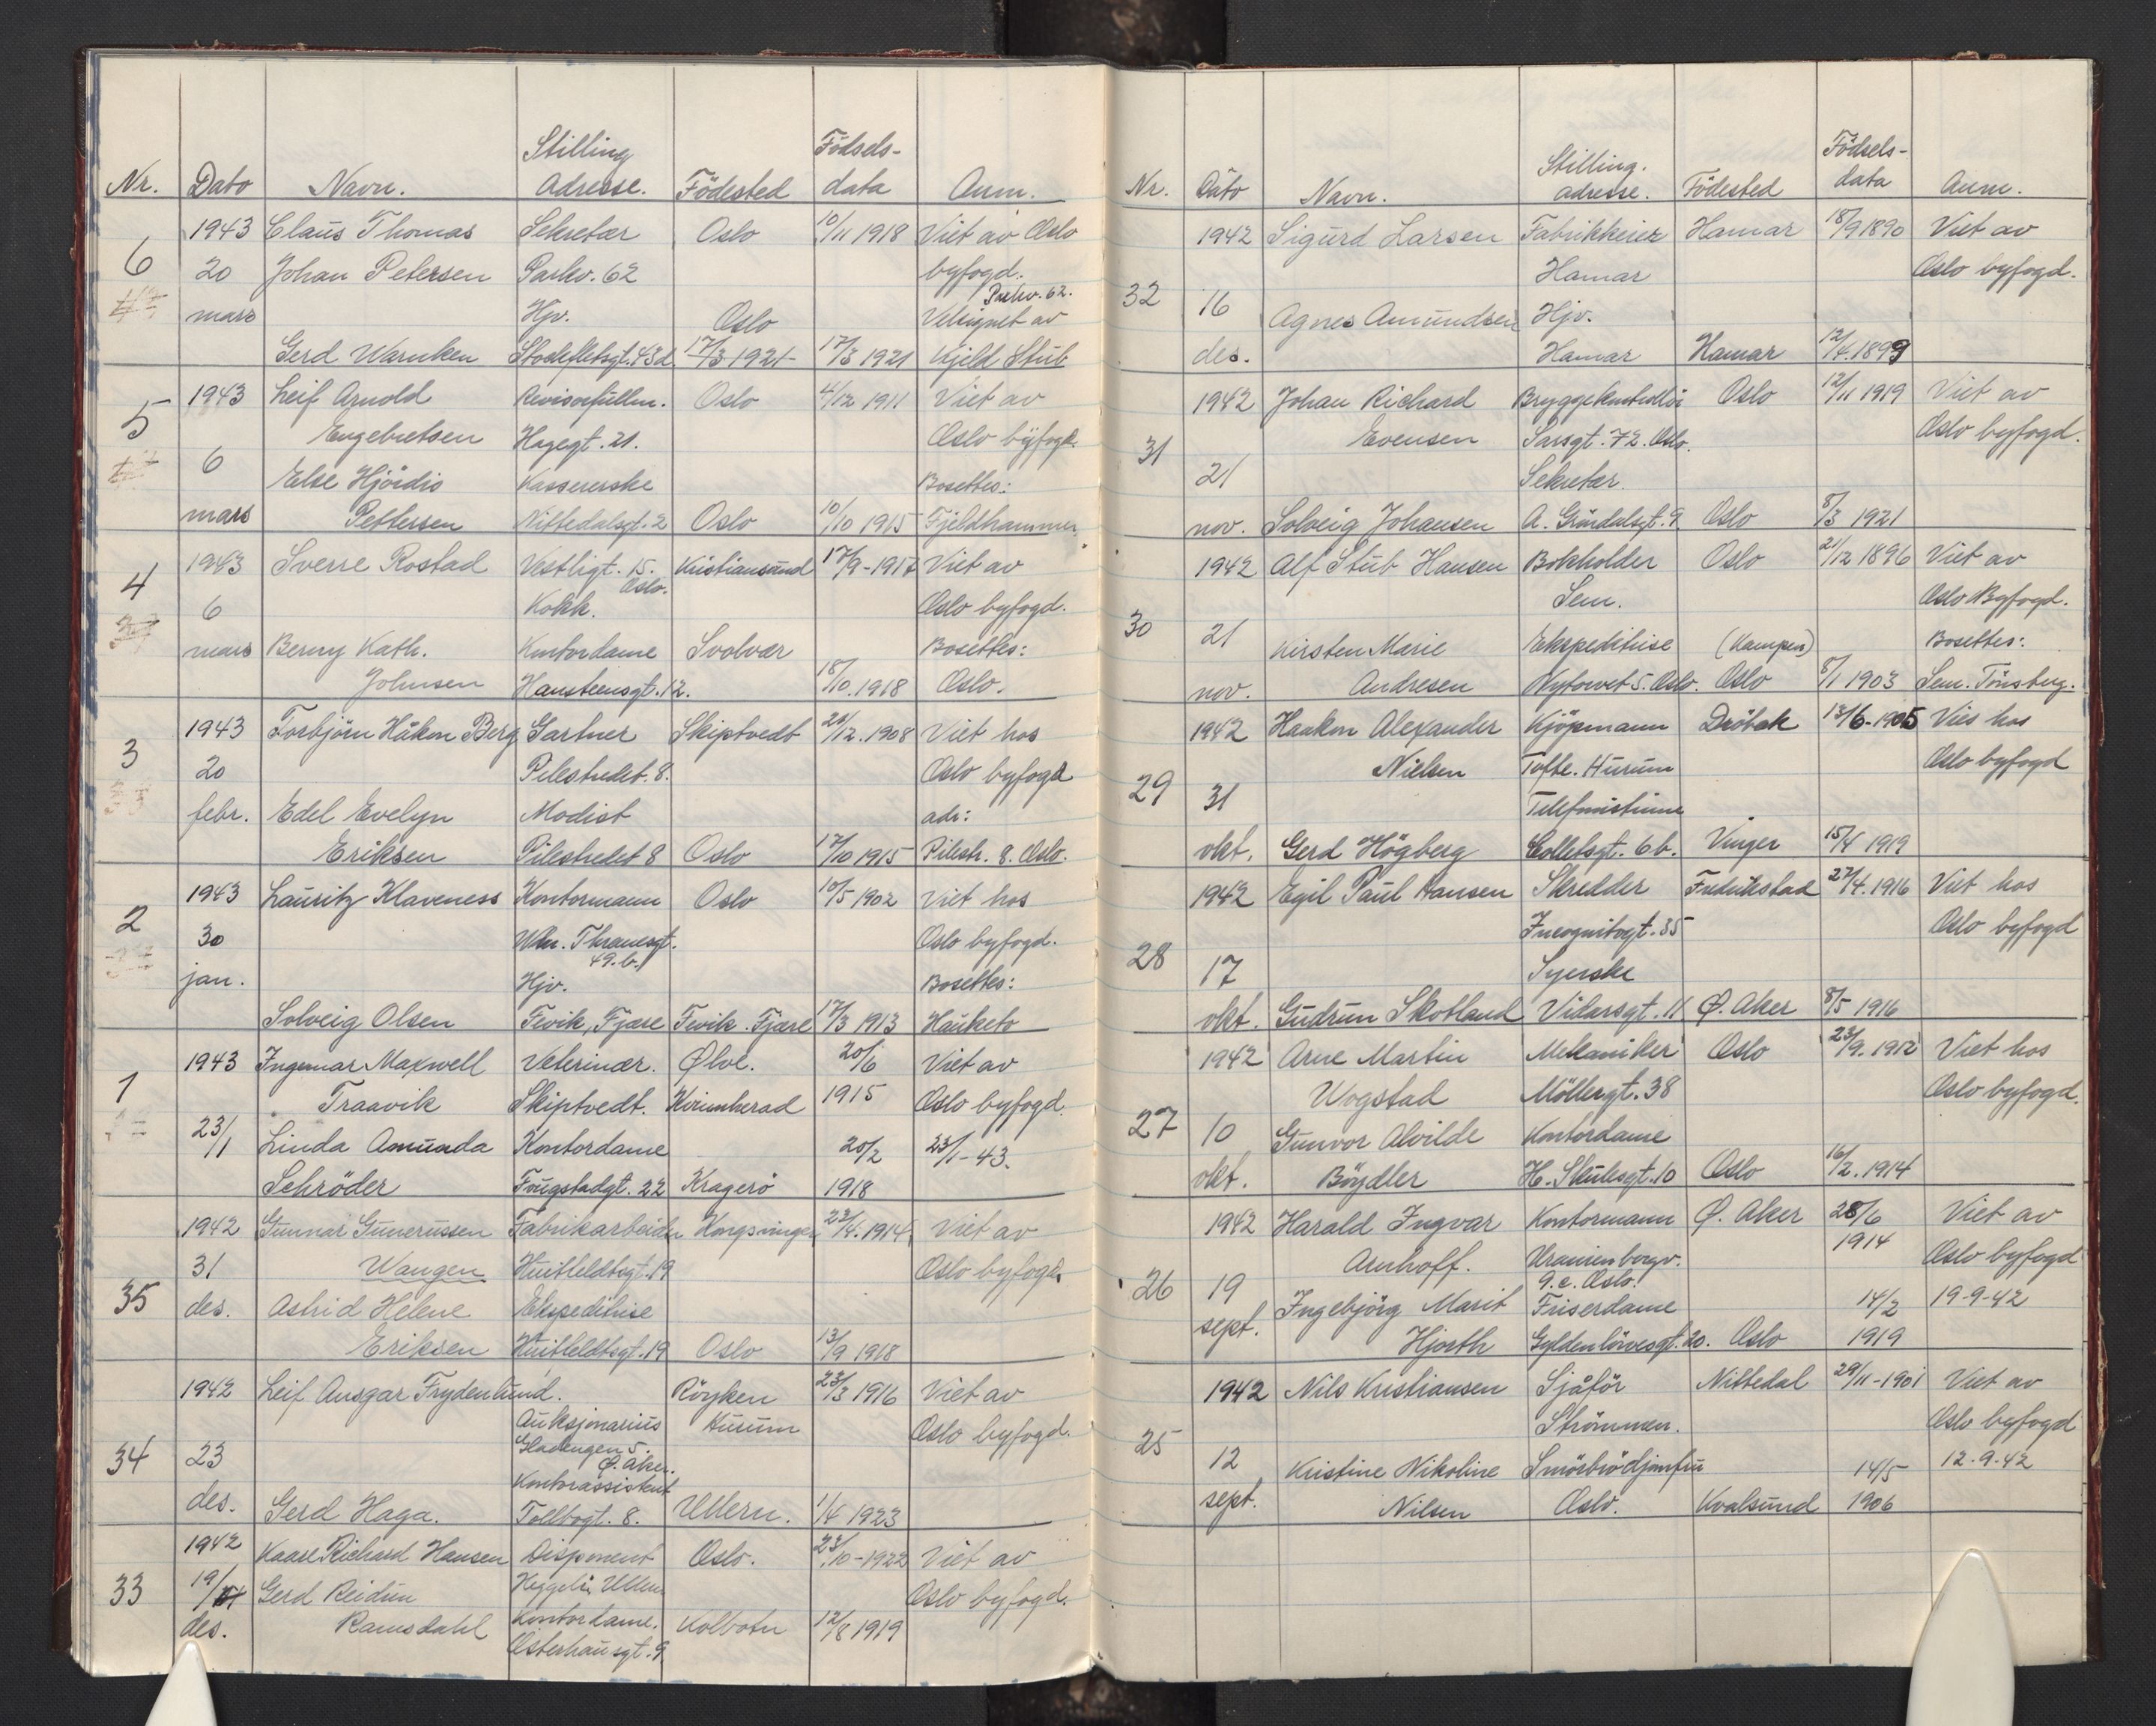 Nr. Dato Navn. Stilling Adresse. Födested Födsels-data Anm.
1943 Claus Thomas Sekretær Oslo 10/11 1918 Viet av Oslo
6 20 Johan Petersen Parkv. 62 byfogd.
Parkv. 62.
mars Hjv. Oslo Velsignet av
Gerd Warnken 43d. 17/3 1921 17/3 1921 Kjeld Stub
1943 Leif Arnold Revisorfullm. Oslo 4/12 1911 Viet av
5 Engebretsen Hagegt. 21. Oslo byfogd.
6 Else Hjördis Kassererske Bosettes:
mars Pettersen Nittedalsgt. 2 Oslo 10/10 1915 Fjeldhammer.
1943 Sverre Rostad Vestligt. 15. Kristiansund 17/9-1917 Viet av
Oslo.
4 6 Kokk. Oslo byfogd.
mars Berny Kath. Kontordame Svolvær Bosettes:
Johnsen Hansteensgt. 12. 18/10.1918 Oslo.
1943 Torbjörn Håkon Berg Gartner Skiptvedt 21/12.1908 Viet hos
3 20 Pilestredet. 8. Oslo byfogd
febr. Edel Evelyn Modist adr:
Eriksen Pilestredet 8 Oslo 17/10 1915 Pilestr. 8. Oslo.
1943 Lauritz Klaveness Kontormann Oslo 10/5 1902 Viet hos
2 30 Mkr. Thranesgt. Oslo byfogd.
49.b.
jan. Hjv. Bosettes:
Solveig Olsen Fevik, Fjære Fevik. Fjære 17/3 1913 Hauketo
1943 Ingemar Maxwell Veterinær. Ølve. 20/6 Viet av
1 Traavik Skiptvedt. Kvinnherad 1915 Oslo byfogd.
23/1 Linda Amunda Kontordame 20/2 23/1-43.
Schröder Fougstadgt. 22 Kragerö 1918
1942 Gunnar Gunerussen Fabrikarbeider Kongsvinger 22/4.1914 Viet av
31 Wangen Huitfeldtsgt. 19 Oslo byfogd.
35 des. Astrid Helene Ekspeditrise
Eriksen Huitfeldtsgt. 19 Oslo 13/9 1918
1942 Leif Ansgar Frydenlund. Röyken 23/3 1916 Viet av
Auksjonarius Hurum Oslo byfogd.
34 23 Hadengen 5.
Ø. Aker.
Kontorassistent
des. Gerd Haga. Tollbogt. 8. Ullern. 1/4 1923
1942 Kaare Richard Hansen Disponent Oslo. 23/10-1922 Viet av
33 19/ Gerd Reidun Heggeli, Ullern Oslo byfogd.
des. Ramsdahl Kontordame. Kolbotn 12/8 1919
Osterhausgt. 9.
Nr. Dato Navn. Stilling. adresse. Födested Födsels-data Anm.
1942 Sigurd Larsen Fabrikkeier Hamar 18/9 1890 Viet av
Hamar Oslo byfogd.
32 16 Agnes Amundsen Hjv.
des. Hamar Hamar 12/4.1899
1942 Johan Richard Bryggekontrollör Oslo 12/11 1919 Viet av
31 Evensen Sarsgt. 72. Oslo. Oslo byfogd.
21 Sekretær.
nov. Solveig Johansen A. Gröndalsgt. 9 Oslo 8/3 1921
1942 Alf Stub Hansen Bokholder Oslo 21/12 1896 Viet av
Sem. Oslo Byfogd.
30 21 Kirsten Marie Ekspeditrise (Kampen) Bosettes:
nov. Andresen Nytorvet 5. Oslo. Oslo 8/1 1903 Sem. Tönsberg.
1942 Haakon Alexander Kjöpmann Dröbak 13/6-1905 Vies hos
Nielsen Tofte. Hurum Oslo byfogd
29 31 Telefonistinne
okt. Gerd Högberg Colletsgt. 6b. Vinger 15/4 1919
1942 Egil Paul Hansen Skredder Fredrikstad 27/4.1916 Viet hos
Incognitogt. 35 Oslo byfogd
28 17 Syerske
okt. Gudrun Skotland Vidarsgt. 11 Ø. Aker 8/5 1916
1942 Arne Martin Mekaniker Oslo 23/9.1912 Viet hos
Wogstad Möllergt. 38 Oslo byfogd.
27 10 Gunvor Alvilde Kontordame
okt. Böydler H. Skulesgt. 10 Oslo 16/2.1914
1942 Harald Ingvar Kontormann Ø. Aker 28/6 1914 Viet av
Arnhoff. Uranienborgv. Oslo byfogd
26 19 9.c. Oslo.
Ingebjörg Marit Friserdame 14/2 19-9-42
sept. Hjorth Gyldenlövesgt. 20. Oslo 1919
1942 Nils Kristiansen Sjåför Nittedal 29/11-1901 Viet av
25 Strömmen. Oslo byfogd
12 Kristine Nikoline Smörbrödjomfru 14/5 12.9.42
sept. Nilsen Oslo. Kvalsund 1906